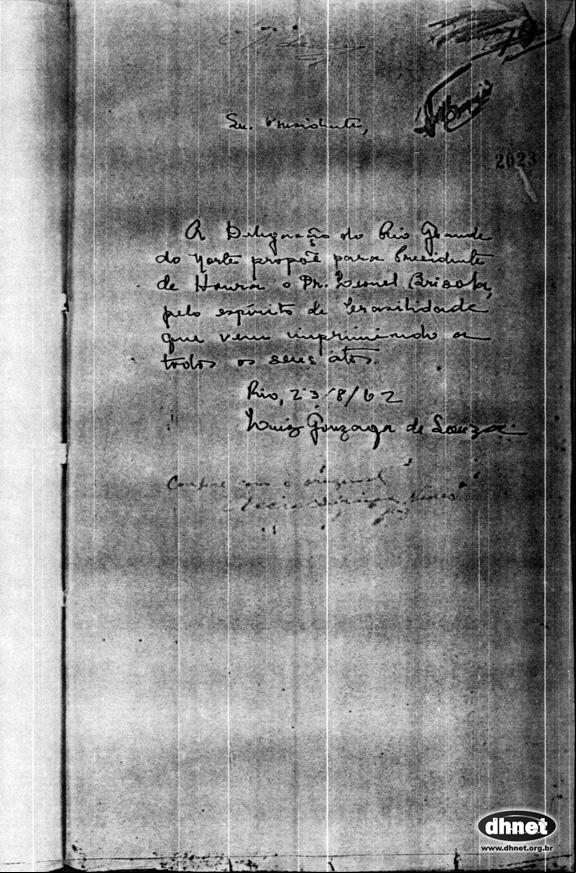 Sr. Presidente,
2023
A Delegação do Rio Grande
do Norte propõe para Presidente
de Honra o Dr. Leonel Brizola,
pelo espírito de brasilidade
que vem imprimindo a
todos os seus atos.
Rio, 23/8/62
Luiz Gonzaga de Souza
Confere com o original
dhnet
www.dhnet.org.br